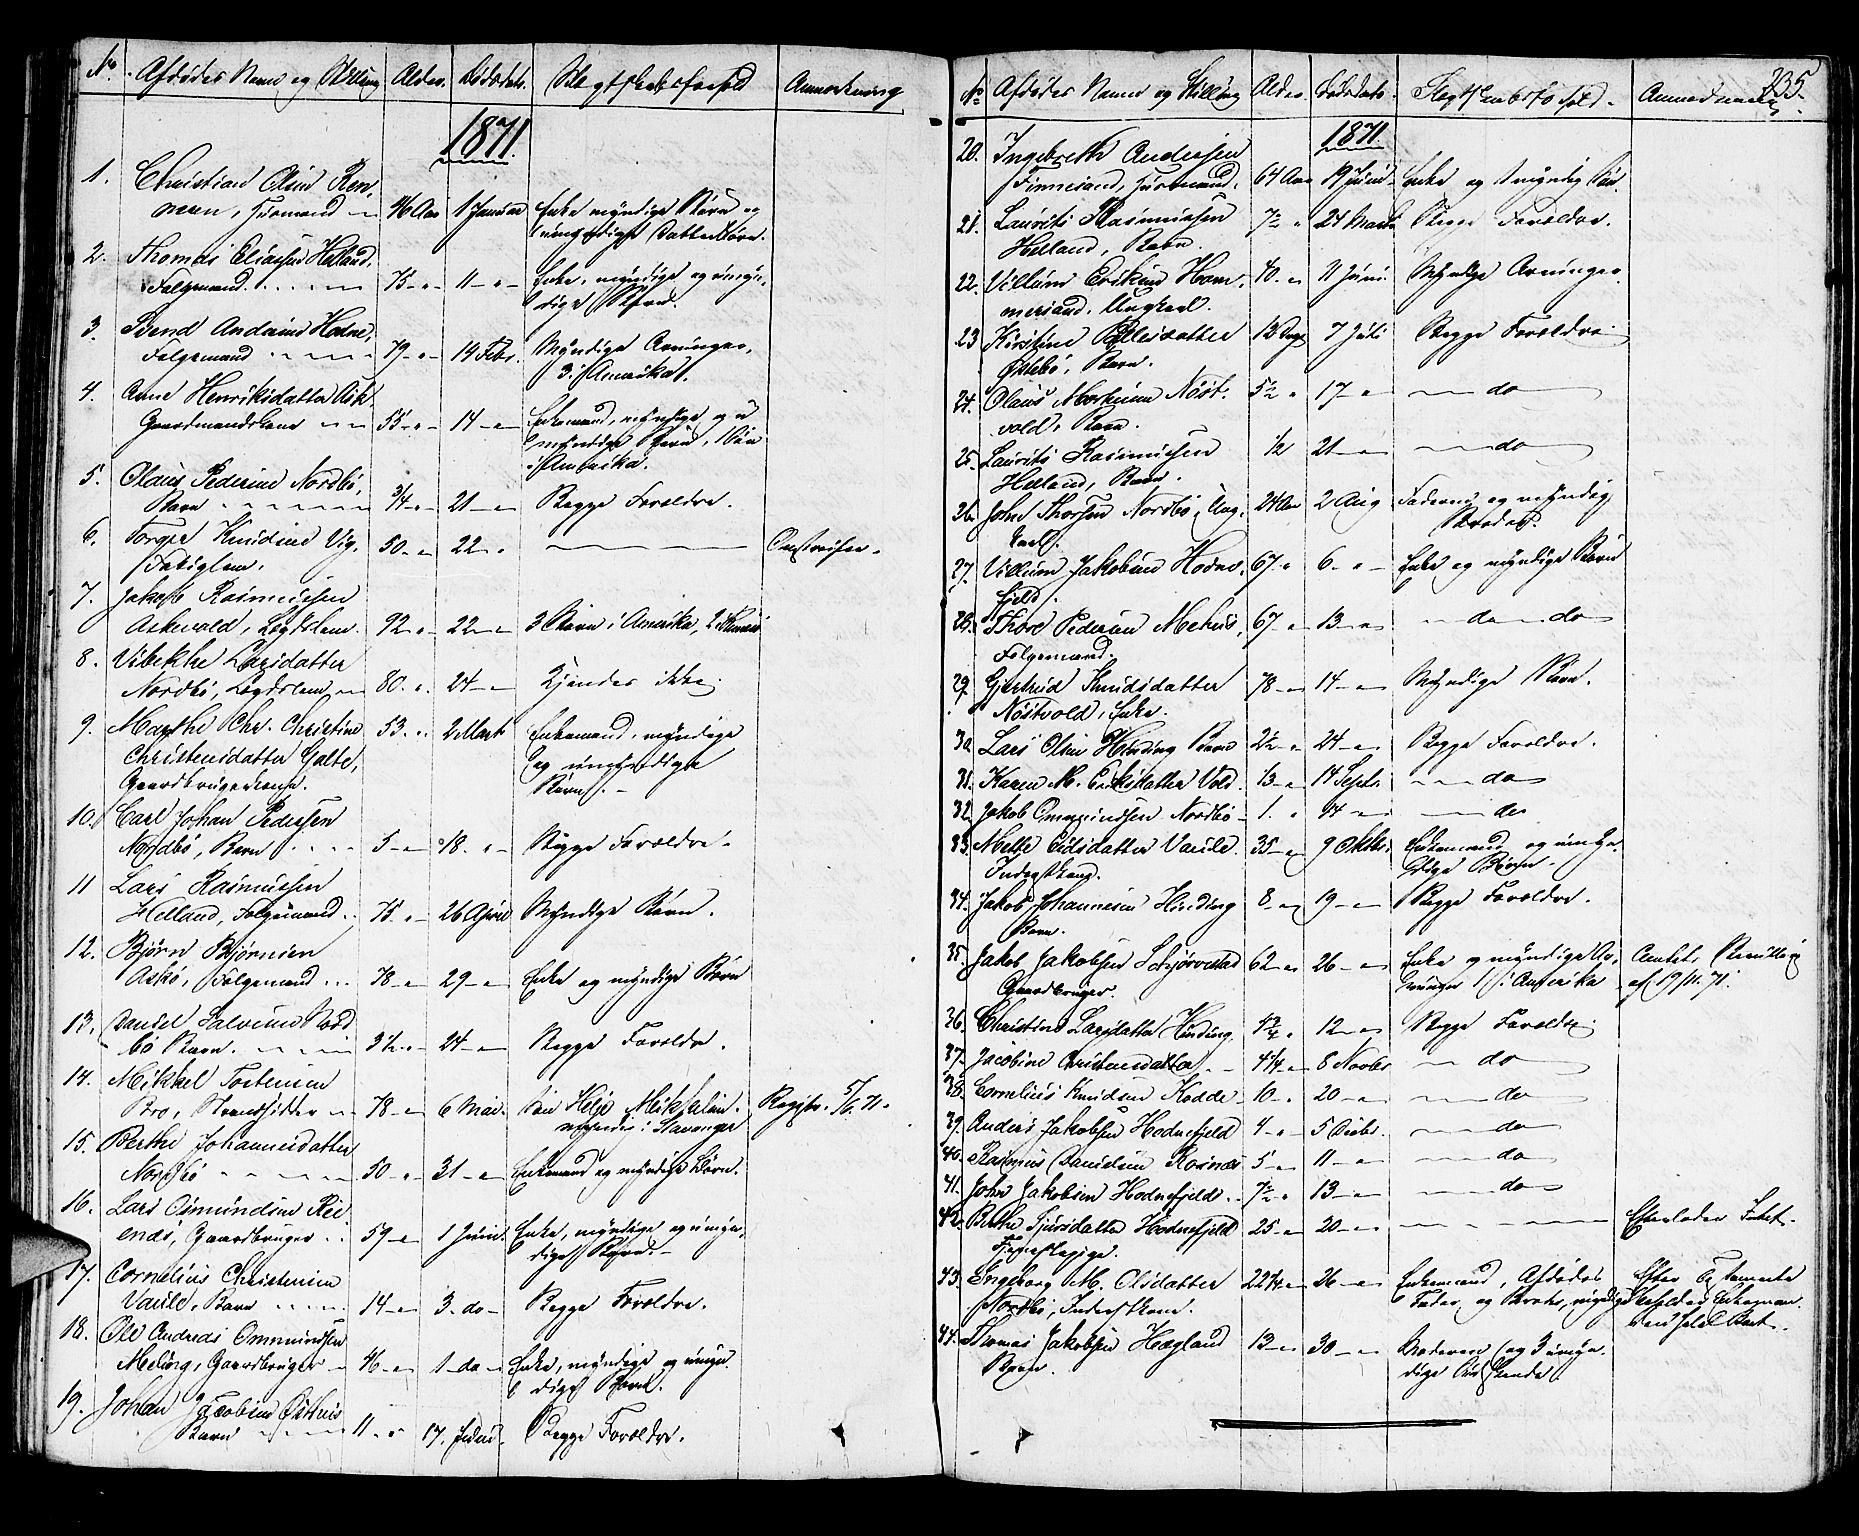 No. Afdødes Navn og Stilling Alder. Dødsdato. Slægtskabsforhold Anmærkning
1871.
1. Christian Olsen Ren-
neren, Husmand 46 Aar 1 Januar Enke myndige Børn og
umyndige Datterbørn.
2. Thomas Eliassen Helland,
Følgemand. 75 11 Enke, myndige og umyn-
dige Børn.
3. Svend Andersen Hodne,
Følgemand 79 14 Febr. Myndige Arvinger,
3 i Amerika.
4. Anne Henriksdatter Ask
Gaardmandskone 55 14 Enkemand, myndige og u
myndige Børn, 1 Søn
i Amerika.
5. Olaus Pedersen Nordbø,
Barn 3/4 21 Begge Forældre.
6. Torger Knudsen Vig,
Fattiglem. 50 22
7. Jakob Rasmussen
Askevold, Lægdslem 92 22 3 Børn i Amerika, 2
8. Vibekke Larsdatter
Nordbø, Lægdslem 80 24 Kjendes ikke.
9. Marthe Chr. Christine 53 2 Marts Enkemand, myndige
Christensdatter Galte, og umyndige
Gaardbrugerkone. Børn.
10. Carl Johan Pedersen
Nordbø, Barn 5 18 Begge Forældre.
11 Lars Rasmussen
Helland, Følgemand 75 26 April Myndige Børn.
12. Bjørn Bjørnsen
Askø, Følgemand 78 29 Enke og myndige Børn
13. Daniel Salvesen Nord
bø Barn. 3 1/2 24 Begge Forældre.
14. Mikkel Tostensen
Bro, Strandsidder 78 6 Mai. Søn Helje Mikkelsen. Registr. 5/6 71.
myndig i Stavanger
15. Berthe Johannesdatter
Nordbø 50 31 Enkemand og myndige Børn.
16. Lars Osmundsen Rei
ensø, Gaardbruger 59 1 Juni. Enke, myndige og umyn-
dige Børn.
17. Cornelius Christensen
Vaule, Barn 14 3. do Begge Forældre.
18. Ole Andreas Ommundsen
Meling, Gaardbruger 46 1 do Enke, myndige og umyn-
dige Børn.
19. Johan Jacobsen Østhus
Barn 11 17. Begge Forældre.
235.
No Afdødes Navn og Stilling Alder. Dødsdato. Slægtskabsforhold. Anmærkning
1871
20. Ingebreth Andersen
Finnesand, Husmand. 64 Aar 19 Juni Enke og 1 myndig Søn.
21. Laurits Rasmussen 7/12 24 Marts Begge Forældre.
Helland, Barn.
22. Villum Eriksen Ham- 40 11 Juni. Myndige Arvinger.
mersand. Ungkarl.
23 Kirstine Pallesdatter 12 Dage 7 Juli Begge Forældre.
Østebø, Barn.
24. Olaus Mortensen Nøst- 5/12 17 do
vold, Barn.
25. Laurits Rasmussen 1/2 21 do
Helland, Barn.
26. John Thorsen Nordbø, Ung- 24 Aar 2 Aug Faderen og myndig
karl. Broder.
27. Villum Jakobsen Hodne- 67 6 Enke og myndige Børn
fjeld.
28. Thore Pedersen Mehus, 67 13 do do
Følgemand.
29. Gjertrud Knudsdatter 78 14 Myndige Børn.
Nøstvold, Enke.
30. Lars Olsen Hinding Barn 2 1/2 24 Begge Forældre.
31. Karen M. Eriksdatter Vold. 1/3 14 Septr. do
32. Jakob Ommundsen Nordbø 1. 14 do
33. Mette Eidsdatter Vaule. 35 9 Oktbr. Enkemand og umyn-
Inderstkone. dige Børn.
34. Jakob Johannesen Hinding 8 19 Begge Forældre.
Barn.
35. Jakob Jakobsen Schjørvestad 62 26 Enke og myndige Ar- Amtets Bevilling
Gaardbruger. vinger 1 i Amerika af 19/11. 71.
36. Christine Larsdatter Hinding 12 Begge Forældre.
37. Jacobine Christensdatter 4 1/4 8 Novbr do
38. Cornelius Knudsen Kodde 10 20 do
39. Anders Jakobsen Hodnefjeld 4 5 Decbr. do
40. Rasmus Danielsen Rosnæs 5 11 do
41. John Jakobsen Hodnefjeld 7/12 13 do
42. Berthe Tjørisdatter Hodnefjeld 25 20 Efterlader Intet.
Tjenestepige.
43. Ingeborg M. Olsdatter 22 1/4 26 Enkemand, Afdødes Efter Testamente
Nordbø, Inderstkone. Fader og Broder, myndige beholder Enkeman-
den hele Boet.
44. Thomas Jakobsen Hægland 13 30 Moderen og 3 umyn-
Barn. dige Søskende.